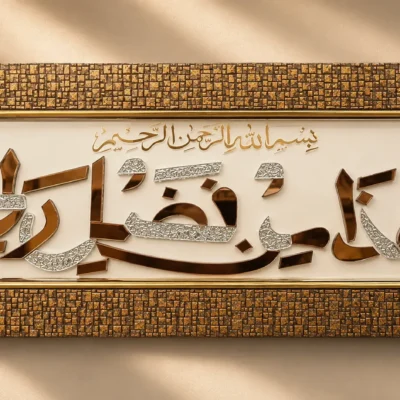 بِسْمِ اللهِ الرَّحْمٰنِ الرَّحِيْمِ
هَٰذَا مِنْ فَضْلِ رَبِّي